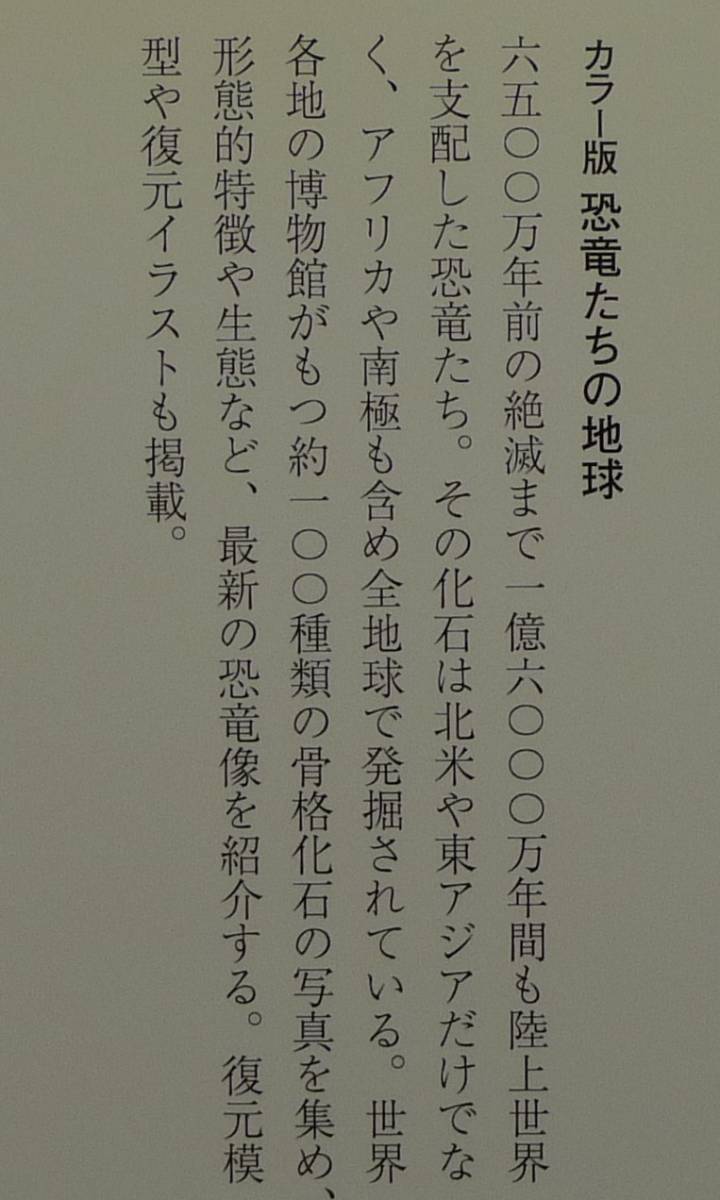 カラー版 恐竜たちの地球
六五〇〇万年前の絶滅まで一億六〇〇〇万年間も陸上世界
を支配した恐竜たち。その化石は北米や東アジアだけでな
く、アフリカや南極も含め全地球で発掘されている。世界
各地の博物館がもつ約一〇〇種類の骨格化石の写真を集め、
形態的特徴や生態など、最新の恐竜像を紹介する。復元模
型や復元イラストも掲載。